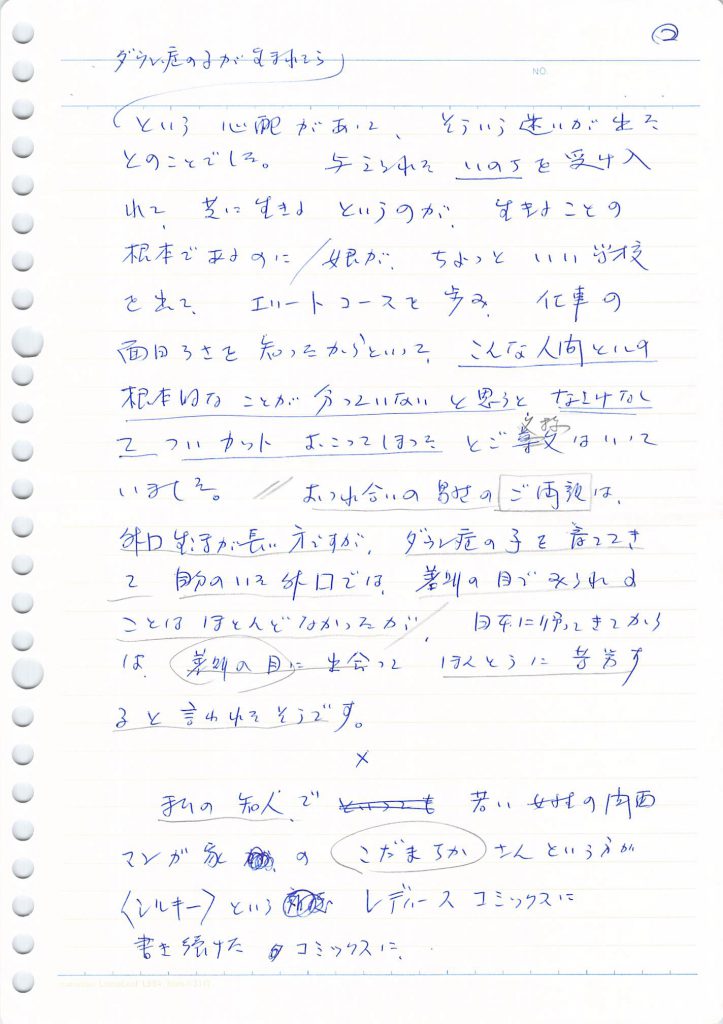 ②
ダウン症の子が生まれてら
NO.
という 心配があって、 そういう迷いが出た
とのことでした。 与えられた いのちを受け入
れて、共に生きる というのが、 生きることの
根本であるのに/娘が、 ちょっと いい学校
を出て、 エリートコースを歩み、 仕事の
面白さを 知ったからといって、 こんな人間としての
根本的な ことが 分っていないと思うと なさけなし
て ついカット おこってしまった とご 父様 はいて
いました。 // おつれ合いの男性の ご両親は、
外国生活が長い方ですが、 ダウン症の子を育ててき
て 自分のいた外国では、 差別の目でみられる
ことは ほとんどなかったが/、 日本に帰ってきてから
は、差別の目に出会って ほんとうに苦労す
ると言われたそうです。
×
私の 知人、で 若い 女性の
マンガ家 の こだまちか さんという方が
〈シルキー〉という レディース コミックスに
書き続けた コミックスに、